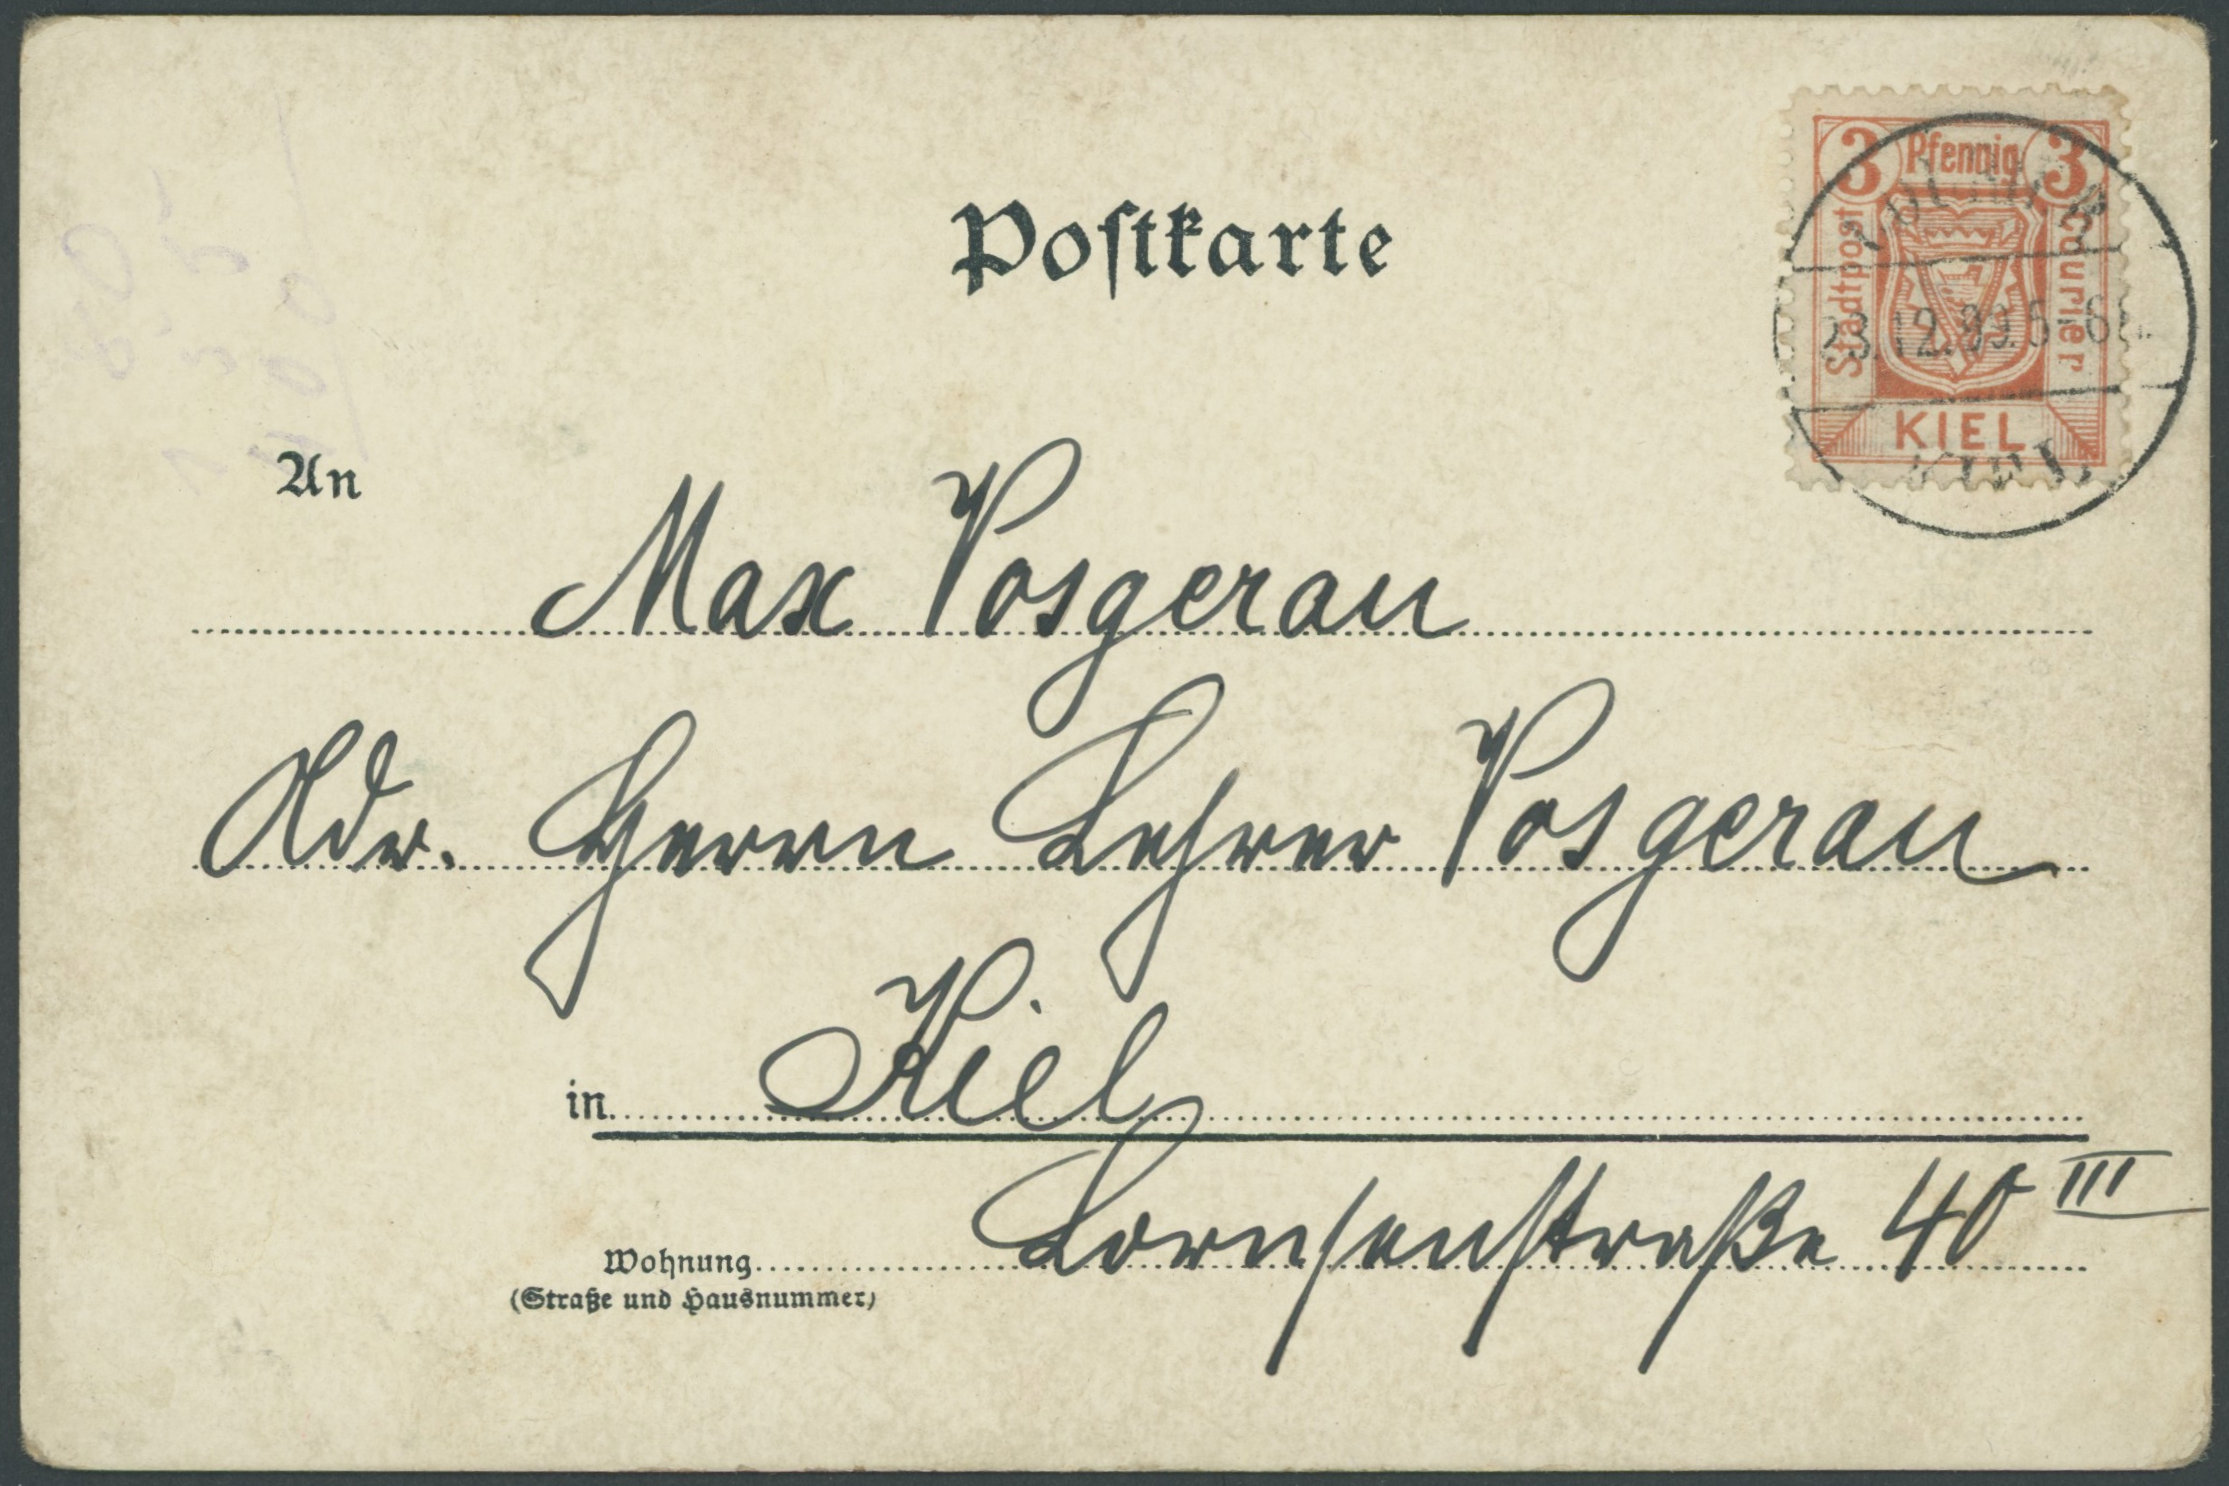 Postkarte
3 Pfennig 3
Stadtpost
Courier
KIEL
23.12.99. 5-6
KIEL
An
Max Vosgerau
Adr. Herrn Lehrer Vosgerau
in Kiel
Wohnung Lornsenstraße 40 III
(Straße und Hausnummer)